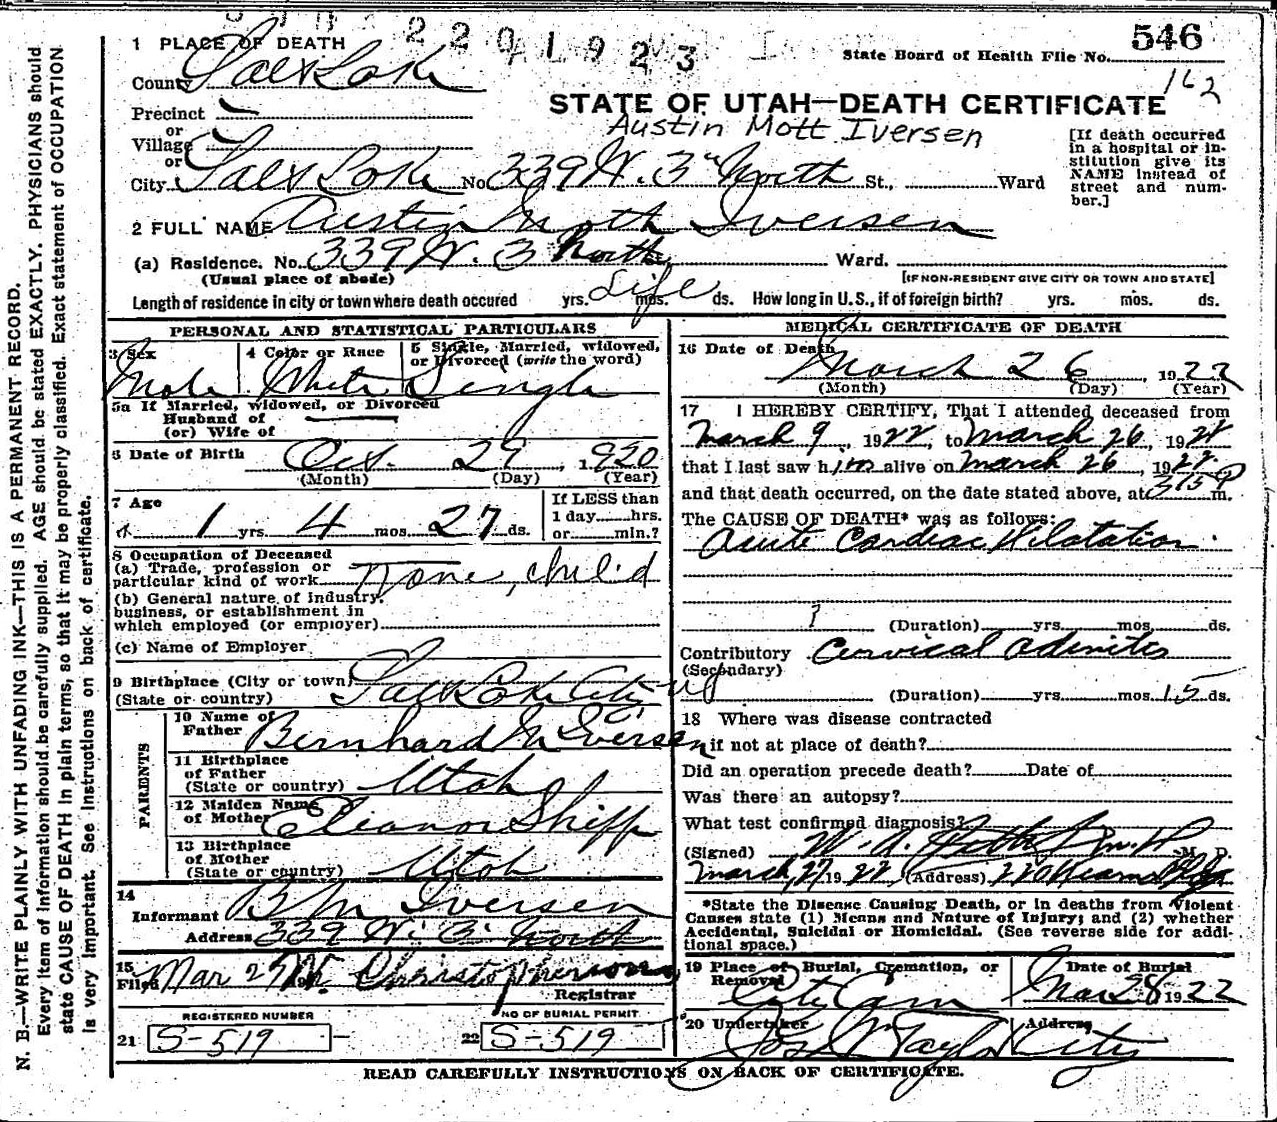 2201923
546
State Board of Health File No.
162
1 PLACE OF DEATH
County Salt Lake
STATE OF UTAH—DEATH CERTIFICATE
Precinct
or
Village
or
Austin Mott Iversen
[If death occurred in a hospital or institution give its NAME instead of street and number.]
City Salt Lake No. 339 W. 3rd North St., Ward
2 FULL NAME Austin Mott Iversen
(a) Residence. No. 339 W. 3 North Ward.
(Usual place of abode) [IF NON-RESIDENT GIVE CITY OR TOWN AND STATE]
Length of residence in city or town where death occured yrs. Life mos. ds. How long in U.S., if of foreign birth? yrs. mos. ds.
PERSONAL AND STATISTICAL PARTICULARS
3 Sex Male
4 Color or Race White
5 Single, Married, widowed, or Divorced (write the word) Single
5a If Married, widowed, or Divorced
Husband of
(or) Wife of
6 Date of Birth Oct. 29, 1920
(Month) (Day) (Year)
7 Age 1 yrs. 4 mos. 27 ds.
If LESS than
1 day......hrs.
or......min.?
8 Occupation of Deceased
(a) Trade, profession or
particular kind of work None, child
(b) General nature of industry,
business, or establishment in
which employed (or employer)
(c) Name of Employer
9 Birthplace (City or town) Salt Lake City
(State or country)
PARENTS
10 Name of Father Bernhard M Iversen
11 Birthplace of Father
(State or country) Utah
12 Maiden Name of Mother Eleanor Shipp
13 Birthplace of Mother
(State or country) Utah
14
Informant B M Iversen
Address 339 W. 3. North
15
Filed Mar 27
Registrar
REGISTERED NUMBER
21 S-519
NO OF BURIAL PERMIT
22 S-519
MEDICAL CERTIFICATE OF DEATH
16 Date of Death March 26, 1922
(Month) (Day) (Year)
17 I HEREBY CERTIFY, That I attended deceased from
March 9, 1922, to March 26, 1922
that I last saw him alive on March 26, 1922
and that death occurred, on the date stated above, at 315 P m.
The CAUSE OF DEATH* was as follows:
Acute Cardiac Dilatation.
? (Duration) yrs. mos. ds.
Contributory Cervical adenitis
(Secondary)
(Duration) yrs. mos. 15 ds.
18 Where was disease contracted
if not at place of death?
Did an operation precede death? Date of
Was there an autopsy?
What test confirmed diagnosis?
(Signed) M. D.
March, 27 1922 (Address)
*State the Disease Causing Death, or in deaths from Violent
Causes state (1) Means and Nature of Injury; and (2) whether
Accidental, Suicidal or Homicidal. (See reverse side for addi-
tional space.)
19 Place of Burial, Cremation, or
Removal City Cem
Date of Burial
Mar 28 1922
20 Undertaker Jos Wm Taylor
Address City
READ CAREFULLY INSTRUCTIONS ON BACK OF CERTIFICATE.
N. B.—WRITE PLAINLY WITH UNFADING INK—THIS IS A PERMANENT RECORD.
Every item of information should be carefully supplied. AGE should be stated EXACTLY. PHYSICIANS should
state CAUSE OF DEATH in plain terms, so that it may be properly classified. Exact statement of OCCUPATION
is very important. See instructions on back of certificate.